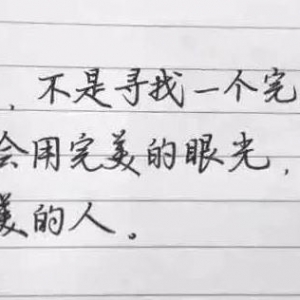 ，不是寻找一个完
会用完美的眼光，
美的人。